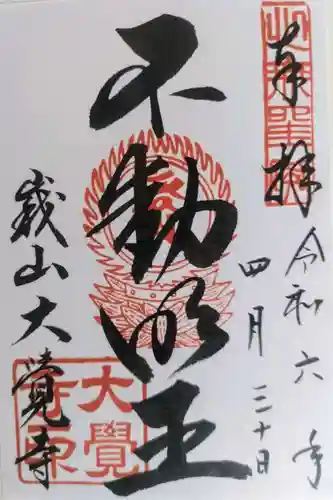 奉拝
令和六年
四月三十日
不動明王
嵯山大覺寺
大覺
寺印